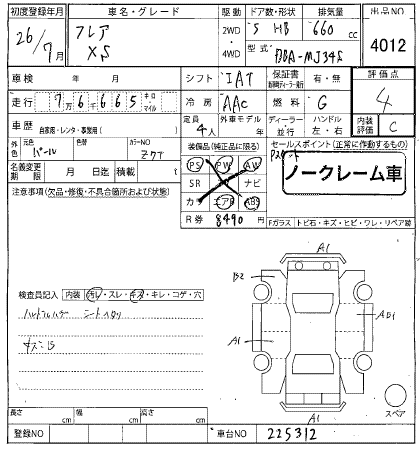 初度登録年月 車名・グレード 駆動 ドア数・形状 排気量 出品NO
26/7月 フレア XS 2WD・4WD 5 HB 660 cc 4012
型式 DBA-MJ34S
車検 年 月 シフト IAT 保証書 有・無 評価点 4
走行 7万6665 キロ マイル 冷房 AAC 燃料 G
車歴 自家用・レンタ・事業用( ) 定員 4人 外車モデル 年 ディーラー 並行 ハンドル 左・右 内装評価 C
外色 元色 パール 色替 カラーNO Z7T 装備品(純正品に限る) セールスポイント(正常に作動するもの)
名義変更期限 月 日迄 積載量 t PS PW AW
SR ナビ ノークレーム車
注意事項(欠品・修復・不具合箇所および状態) カワ エアB ABS
R券 8490 円 Fガラス トビ石・キズ・ヒビ・ワレ・リペア跡
A1
B2
A1
A1
検査員記入 内装 汚レ・スレ・キズ・キレ・コゲ・穴
シートヘタリ
キズ
スペア
長さ cm 幅 cm 高さ cm
A1
登録NO 車台NO 225312